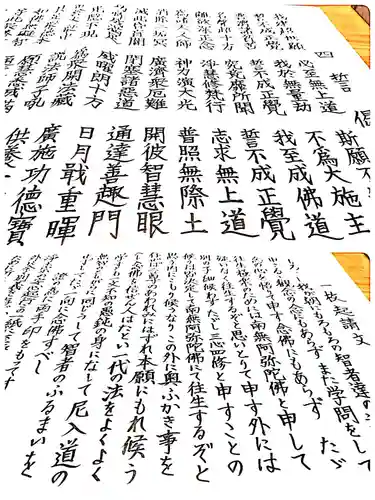 四誓偈
我建超世願 必至無上道 斯願不
我於無量劫 不為大施主
普濟諸貧苦 誓不成正覺 我至成佛道
名聲超十方 究竟靡所聞 誓不成正覺
離欲深正念 浄慧修梵行 志求無上道
為諸天人師 神力演大光 普照無際土
消除三垢冥 廣濟衆厄難 開彼智慧眼
滅此昏盲闇 閉塞諸惡道 通達善趣門
威曜朗十方 日月戢重暉
為衆開法藏 廣施功德寶
説法師子吼 供養一
一枚起請文
もろこし我朝にもろもろの智者達の
観念の念にもあらず また学問をして
念の心を悟りて申す念佛にもあらず ただ
往生極楽のためには南無阿弥陀佛と申して
疑いなく往生するぞと思いとりて申す外には
別の子細候わず ただし三心四修と申すことの
候は皆決定して南無阿弥陀佛にて往生するぞと
思ううちにこもり候なり この外に奥ふかき事を
存ぜば二尊のあわれみにはずれ本願にもれ候う
べし 念佛を信ぜん人はたとい一代の法をよくよく
学すとも一文不知の愚鈍の身になして尼入道の
無智のともがらに同じうして智者のふるまいを
せずしてただ一向に念佛すべし